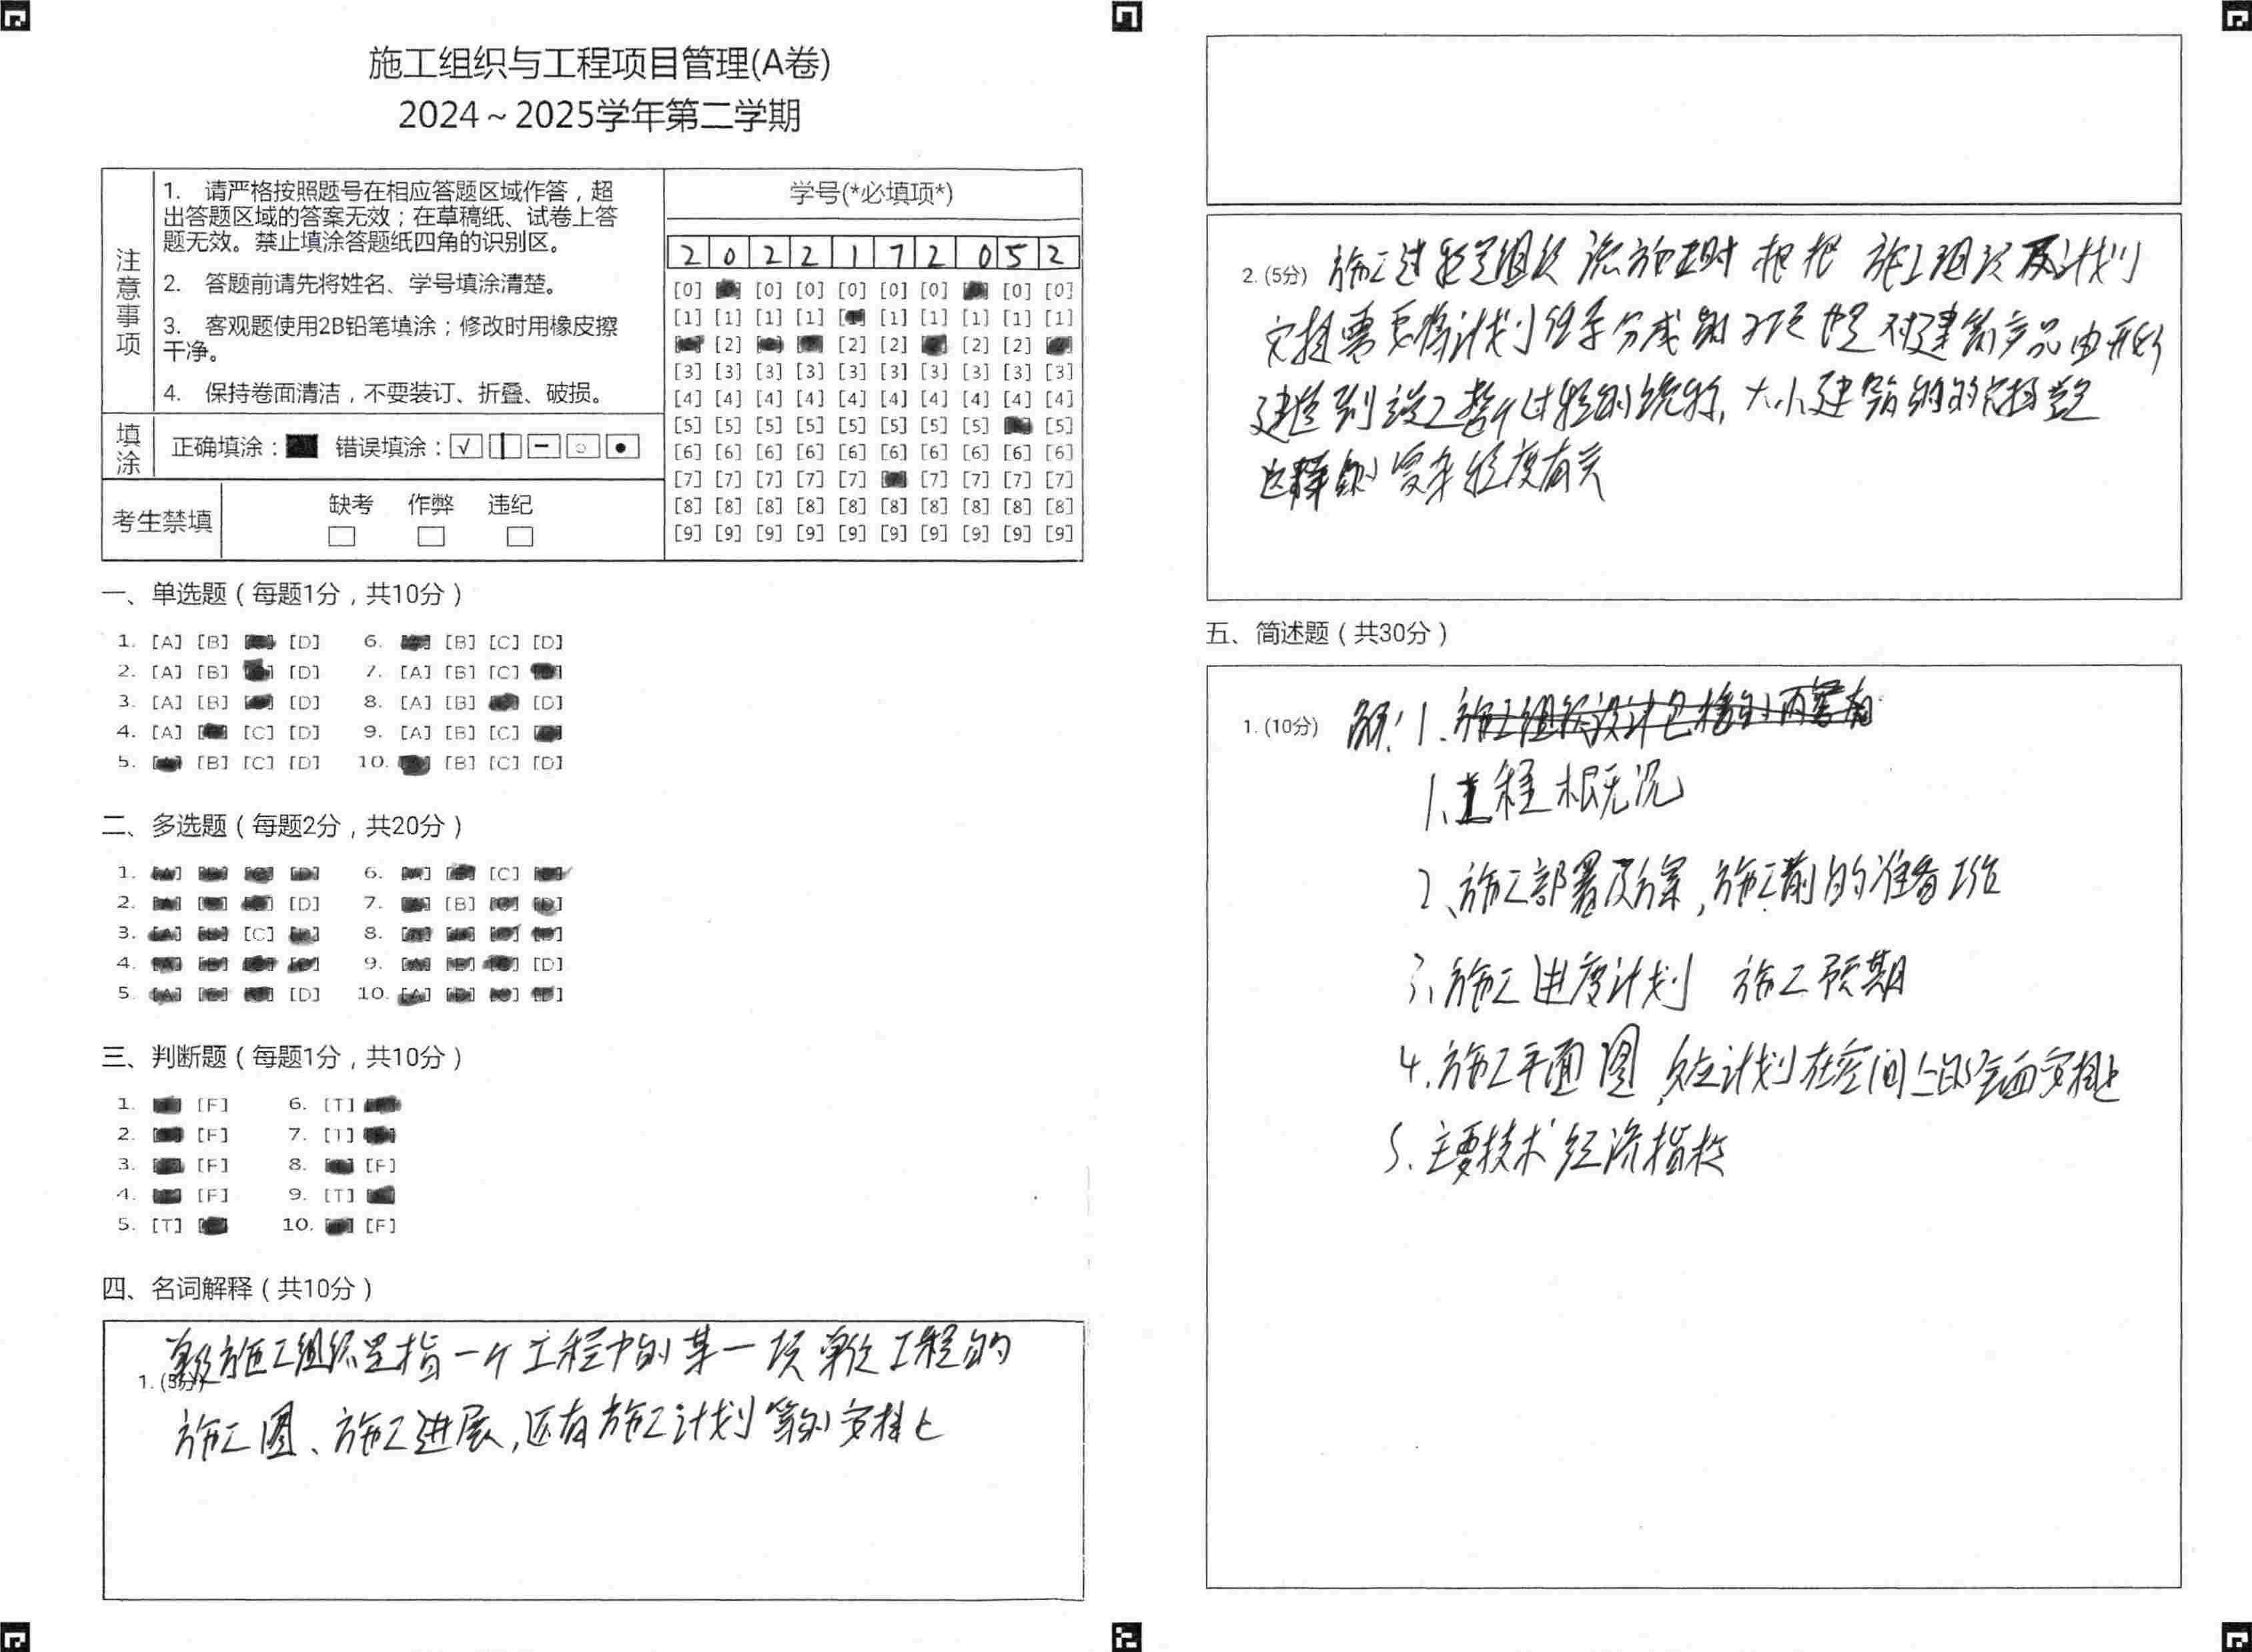 施工组织与工程项目管理(A卷)
2024～2025学年第二学期
注意事项
1. 请严格按照题号在相应答题区域作答，超
出答题区域的答案无效；在草稿纸、试卷上答
题无效。禁止填涂答题纸四角的识别区。
2. 答题前请先将姓名、学号填涂清楚。
3. 客观题使用2B铅笔填涂；修改时用橡皮擦
干净。
4. 保持卷面清洁，不要装订、折叠、破损。
填涂
正确填涂： 错误填涂：√
考生禁填
缺考 作弊 违纪
学号(*必填项*)
2 0 2 2 1 7 2 0 5 2
[0] [0] [0] [0] [0] [0] [0] [0]
[1] [1] [1] [1] [1] [1] [1] [1] [1]
[2] [2] [2] [2] [2]
[3] [3] [3] [3] [3] [3] [3] [3] [3] [3]
[4] [4] [4] [4] [4] [4] [4] [4] [4] [4]
[5] [5] [5] [5] [5] [5] [5] [5] [5]
[6] [6] [6] [6] [6] [6] [6] [6] [6] [6]
[7] [7] [7] [7] [7] [7] [7] [7] [7]
[8] [8] [8] [8] [8] [8] [8] [8] [8] [8]
[9] [9] [9] [9] [9] [9] [9] [9] [9] [9]
一、单选题（每题1分，共10分）
1. [A] [B] [D] 6. [B] [C] [D]
2. [A] [B] [D] 7. [A] [B] [C]
3. [A] [B] [D] 8. [A] [B] [D]
4. [A] [C] [D] 9. [A] [B] [C]
5. [B] [C] [D] 10. [B] [C] [D]
二、多选题（每题2分，共20分）
1. 6. [C]
2. [D] 7. [B]
3. [C] 8.
4. 9. [D]
5. [D] 10.
三、判断题（每题1分，共10分）
1. [F] 6. [T]
2. [F] 7. [T]
3. [F] 8. [F]
4. [F] 9. [T]
5. [T] 10. [F]
四、名词解释（共10分）
1. (5分)
施工组织是指一个工程中的某一项单位工程的
施工图、施工进展,还有施工计划等的安排
2. (5分) 施工过程是组织流水施工时 根据 施工组织及计划
安排需要将计划任务分成的子项 也是 对建筑产品由开始
建造到竣工整个过程的统称,大小
复杂程度有关
五、简述题（共30分）
1. (10分) 解: 1. 施工组织设计包括的内容有
1、工程概况
2、施工部署及方案,施工前的准备工作
3、施工进度计划 施工预期
4.施工平面图,计划在空间上的全面安排
5.主要技术经济指标